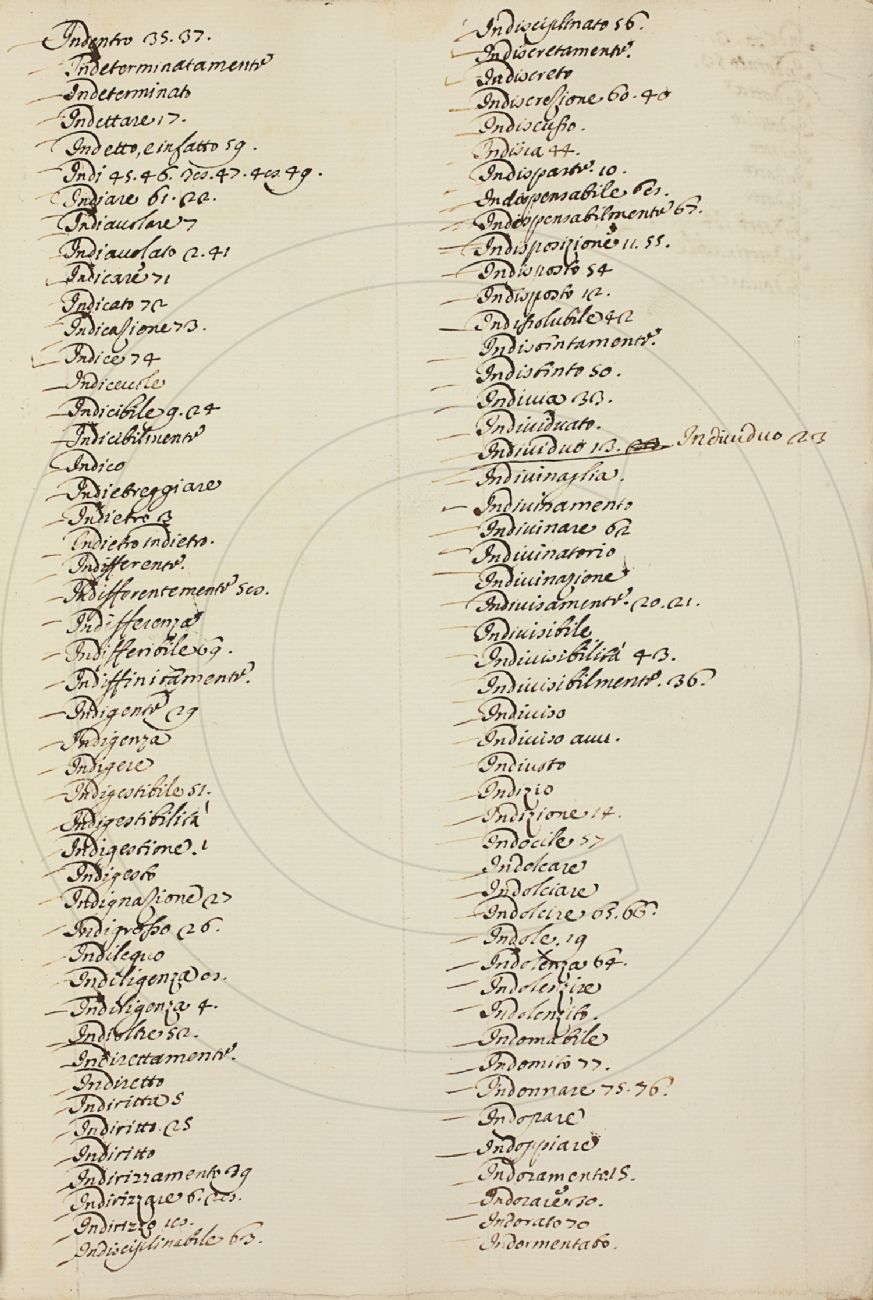 Indentro 35. 37.
Indeterminatamente
Indeterminato
Indettare 17.
Indetto, e infatto 59.
Indi 45. 46. 47. 49.
Indiare 61. 22.
Indiauolare 7
Indiauolato 2. 41
Indicare 71
Indicato 72
Indicasione 73.
Indice 74
Indiceuole
Indicibile 9. 24
Indicibilmente
Indico
Indietreggiare
Indietro 3
Indietro indietro.
Indifferente.
Indifferentemente
Indifferenza
Indifferibile 69.
Indiffinitamente.
Indigente 29
Indigenza
Indigere
Indigestibile 51.
Indigestibilità
Indigestione. 1
Indigesto
Indignasione 27
Indigrosso 26.
Indilequo
Indiligenza
Indiligenza 4.
Indioltre 52.
Indirettamente.
Indiretto
Indiritta 5
Indiritto. 25
Indiritto
Indirizzamento 39
Indirizzare 6.
Indirizzo
Indisciplinabile 63.
Indisciplinato 56.
Indiscretamente.
Indiscreto
Indiscresione 60. 40
Indiscusso.
Indisia 44.
Indisparte. 10.
Indispensabile
Indispensabilmente 67.
Indisposizione 11. 55.
Indisposto 54
Indisposto 12.
Indissolubile 42
Indistintamente.
Indistinto 50.
Indiuia 33.
Indiuiduato.
Indiuiduo 13. Indiuiduo 23
Indiuinaglia.
Indiuinamento
Indiuinare 62
Indiuinatorio
Indiuinazione
Indiuisamente. 20. 21.
Indiuisibile
Indiuisibilità 43.
Indiuisibilmente. 36.
Indiuiso
Indiuiso auu.
Indiusto
Indizio
Indizione 14.
Indocile 57
Indolcare
Indolciare
Indolcire 65. 66.
Indole. 19
Indolenza 64.
Indolenzire
Indolenzito.
Indomabile
Indomito 77.
Indonnare 75. 76.
Indopare
Indoppiare
Indoramento 15.
Indorare
Indorato 70
Indormentato.